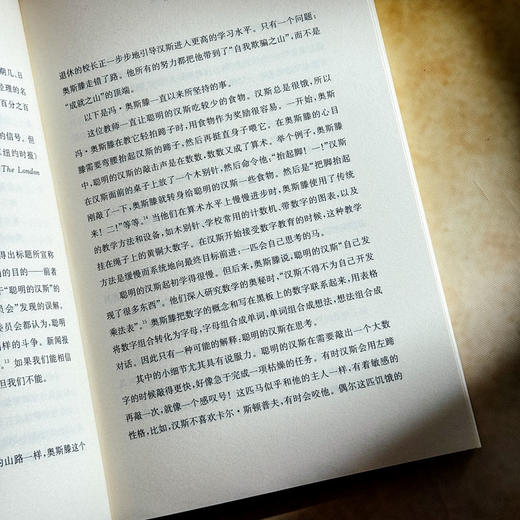 期几、日
经理的名
百分之百
的信号。但
《纽约时报》
The London
得出标题所宣称
的目的——前者
“聪明的汉斯”的
委员会”发现的误解,
委员会都认为,聪明
样的斗争。新闻报
。13 如果我们能相信
但我们不能。
的山路一样,奥斯滕这个
退休的校长正一步步地引导汉斯进入更高的学习水平。只有一个问题:
奥斯滕走错了路。他所有的努力都把他带到了“自我欺骗之山”,而不是
“成就之山”的顶端。
以下是冯·奥斯滕一直以来所坚持的事。
这位教师一直让聪明的汉斯吃较少的食物。汉斯总是很饿,所以
冯·奥斯滕在教它轻拍蹄子时,用食物作为奖励很容易。一开始,奥斯
滕需要弯腰抬起汉斯的蹄子,然后再挺直身子喂它。在奥斯滕的心目
中,聪明的汉斯的敲击声是在数数,数数又成了算术。举个例子,奥斯滕
在汉斯面前的桌子上放了一个木别针,然后命令他:“抬起脚!一!”汉斯
刚敲了一下,奥斯滕就转身给聪明的汉斯一些食物。然后是“把脚抬起
来!二!”等等。14 当他们在算术水平上慢慢进步时,奥斯滕使用了传统
的教学方法和设备,如木别针、学校常用的计数机、带数字的图表,以及
挂在绳子上的黄铜大数字。在汉斯开始接受数字教育的时候,这种教学
方法是缓慢而系统地向最终目标前进:一匹会自己思考的马。
聪明的汉斯起初学得很慢。但后来,奥斯滕说,聪明的汉斯“自己发
现了很多东西”。他们深入研究数学的奥秘时,“汉斯不得不为自己开发
乘法表”。15 奥斯滕把数字的概念和写在黑板上的数字联系起来,用表格
将数字组合转化为字母,字母组合成单词,单词组合成想法,想法组合成
对话。因此只有一种可能的解释,聪明的汉斯在思考。
其中的小细节尤其具有说服力。聪明的汉斯在需要敲出一个大数
字的时候敲得更快,好像急于完成一项枯燥的任务。有时汉斯会用左蹄
再敲一次,就像一个感叹号!这匹马似乎和他的主人一样,有着敏感的
性格,比如,汉斯不喜欢卡尔·斯顿普夫,有时会咬他。偶尔这匹饥饿的